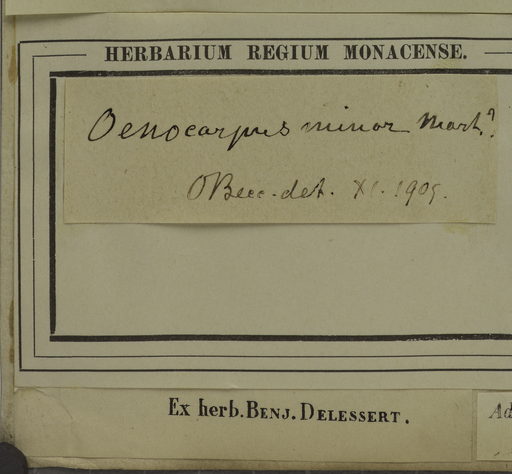 HERBARIUM REGIUM MONACENSE.
Oenocarpus minor Mart.?
OBecc. det. XI. 1905.
Ex herb. BENJ. DELESSERT.
Ad